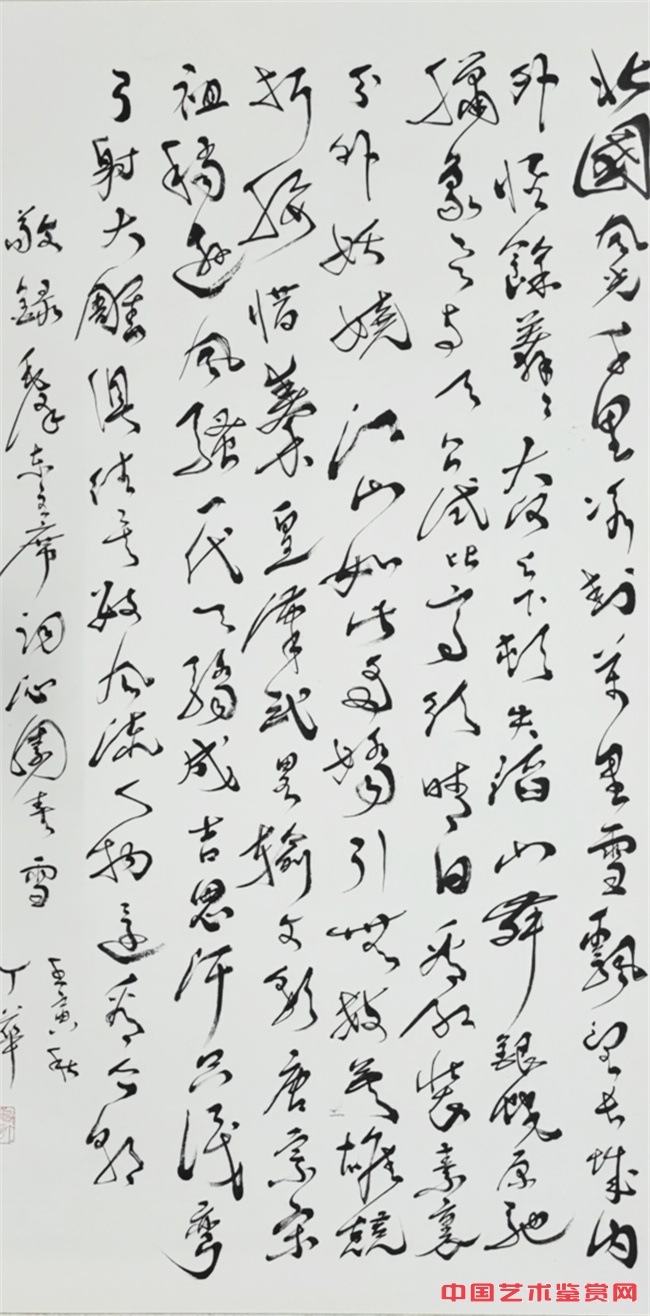 北國風光千里冰封萬里雪飄望長城内
外惟餘莽々大河上下頓失滔山舞銀蛇原馳
蠟象欲与天公試比高須晴日看紅裝素裹
分外妖嬈江山如此多嬌引無數英雄競
折腰惜秦皇漢武畧輸文彩唐宗宋
祖稍遜風騷一代天驕成吉思汗只識彎
弓射大雕俱往矣數風流人物還看今朝
敬録毛澤东主席詞沁園春雪
壬寅秋
丁華
中国艺术鉴赏网